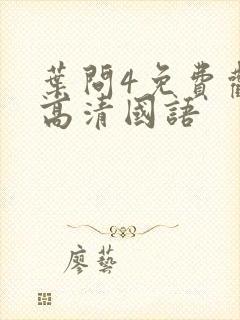 葉問4免費
高清國語
廖藝